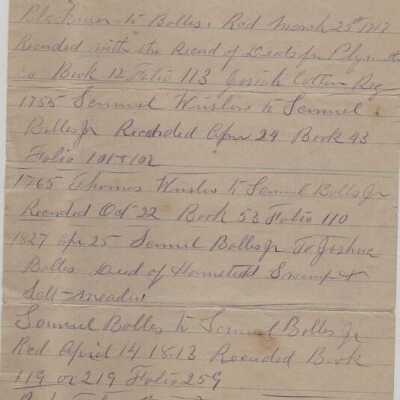 to Bolles. Recd March 25th 1717
Recorded with the Record of Deeds for Plymouth
Co Book 12 Folio 113 Josiah Cotton Reg
1755 Samuel Winslow to Samuel
Bolles Jr Recorded Apr 29 Book 43
Folio 101 & 102
1765 Thomas Winslow to Samuel Bolls Jr
Recorded Oct 22 Book 53 Folio 110
1827 Apr 25 Samuel Bolles Jr To Joshua
Bolles Deed of Homested Swamp &
Salt-meadow
Samuel Bolles to Samuel Bolles Jr
Recd April 14 1813 Recorded Book
119 or 219 Folio 259